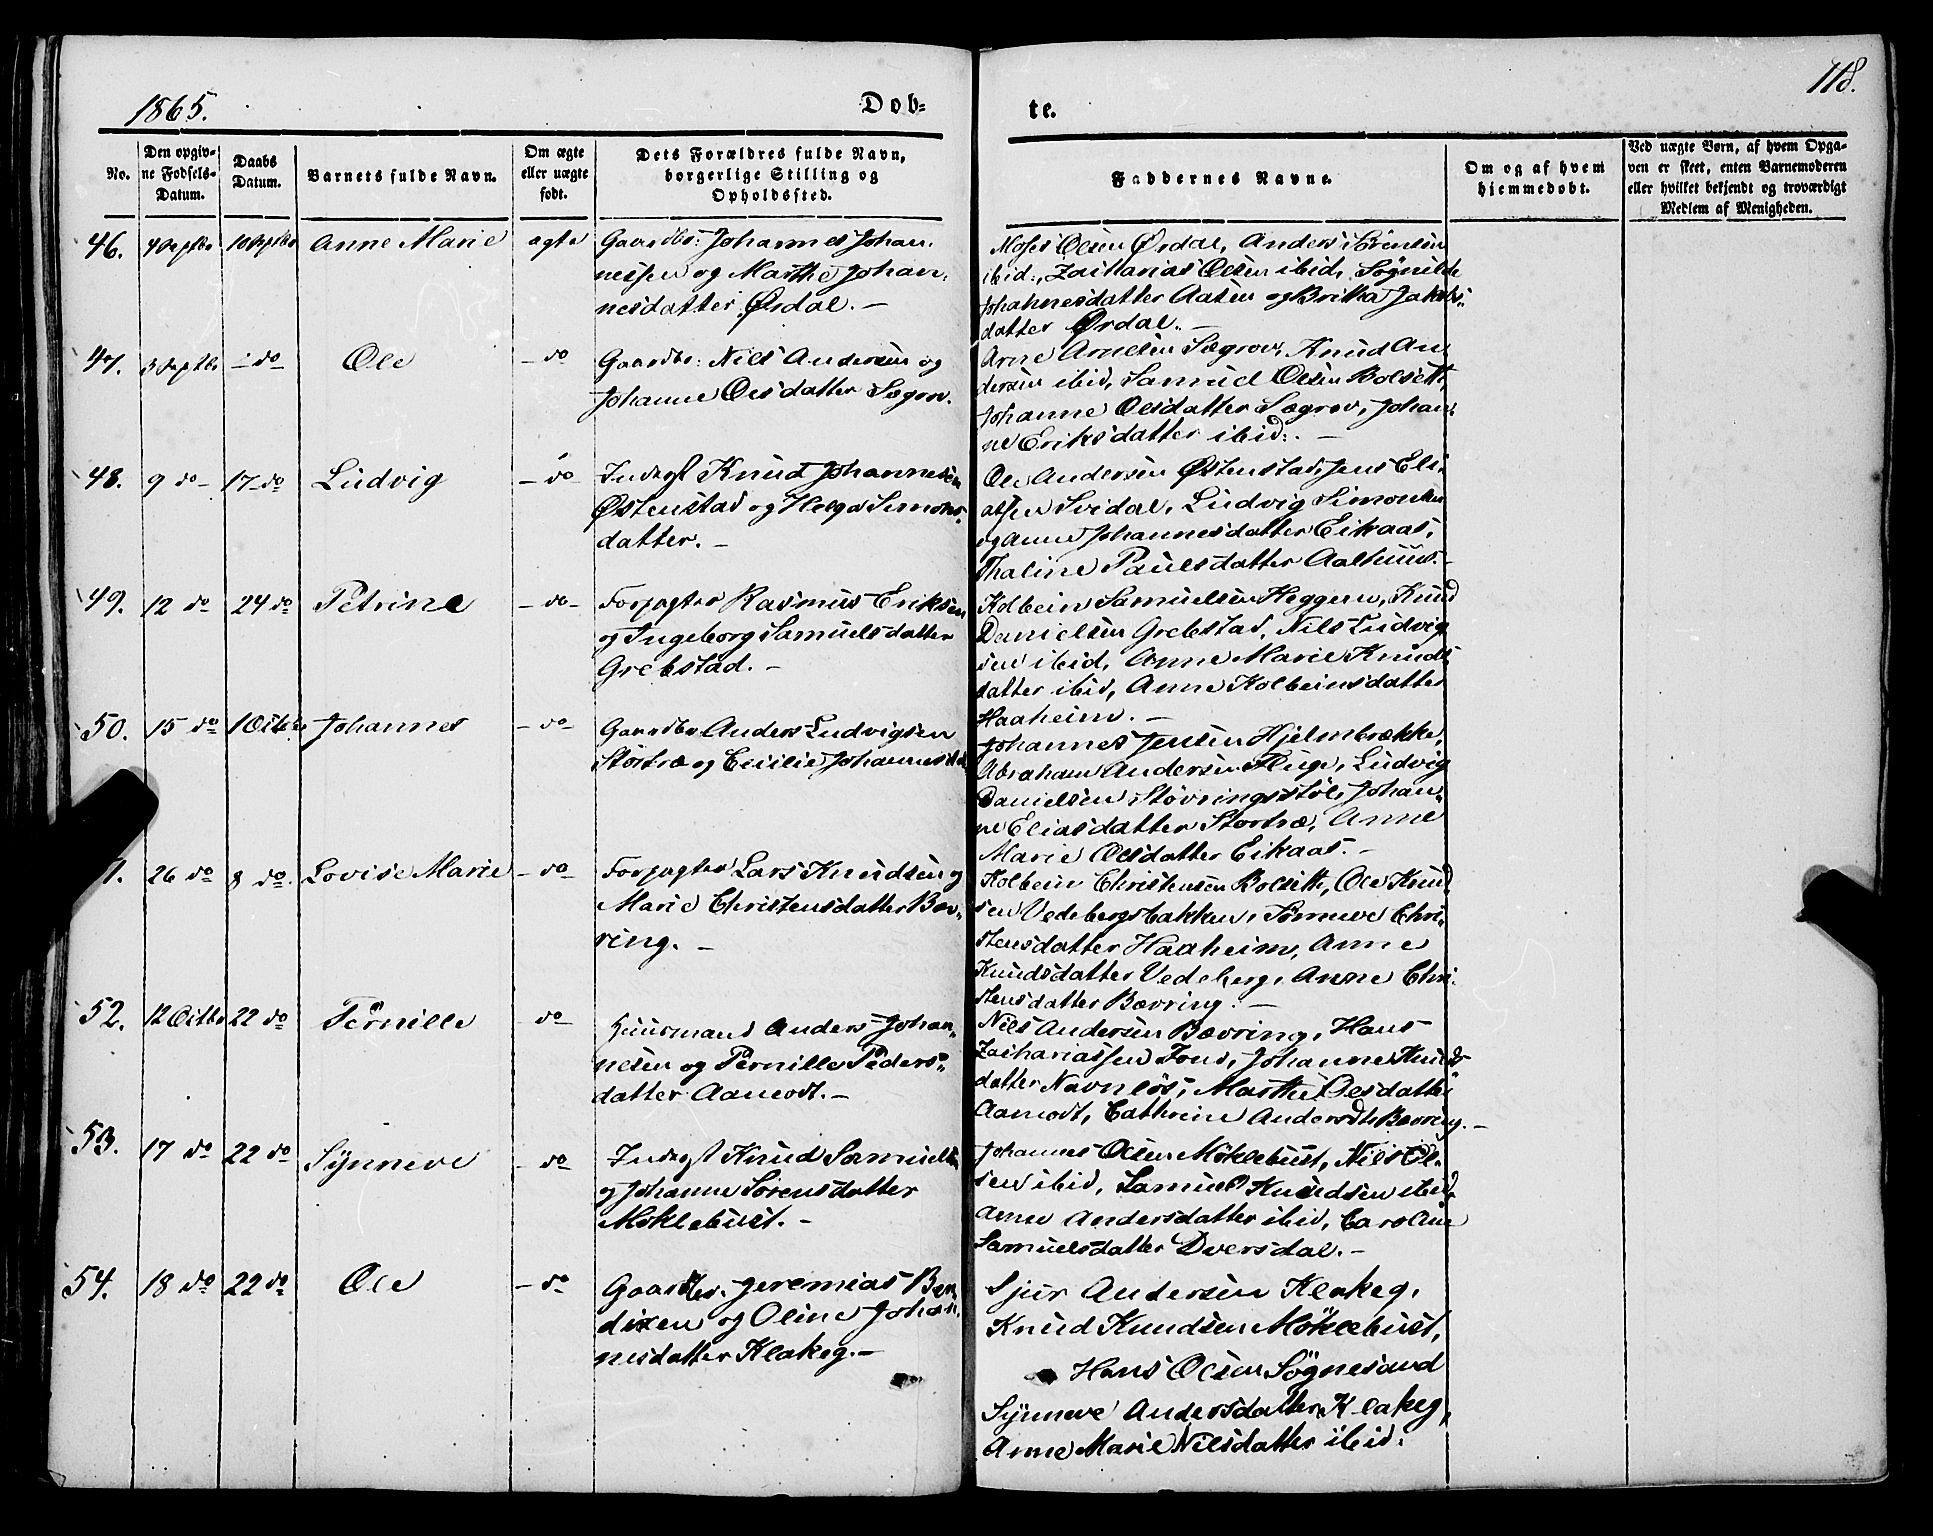 1865.
Dob=
te.
118.
No.
Den opgiv=
ne Fødsels=
Datum.
Daabs
Datum.
Barnets fulde Navn.
Om ægte
eller uægte
født.
Dets Forældres fulde Navn,
borgerlige Stilling og
Opholdssted.
Faddernes Navne.
Om og af hvem
hjemmedøbt.
Ved uægte Børn, af hvem Opga-
ven er skeet, enten Barnemoderen
eller hvilket bekjendt og troværdigt
Medlem af Menigheden.
46. 4 Septbr 10 Septbr Anne Marie ægte
Gaardbr: Johannes Johan-
nessen og Marthe Johan-
nesdatter Ørdal. —
Moses Olsen Ørdal, Anders Sørensen
ibid:, Zacharias Olsen ibid, Søgnilde
Johannesdatter Aasen og Britha Jakobs-
datter Ørdal. —
47. 3 Septbr - do Ole - do
Gaardbr: Nils Andersen og
Johanne Olsdatter Sægrov.
Arne Arnesen Sægrov, Knud An-
dersen ibid, Samuel Olsen Bolsett,
Johanne Olsdatter Sægrov, Johan-
ne Eriksdatter ibid:. —
48. 9 do - 17 do Ludvig - do -
Inderst Knud Johannesen
Østenstad og Helga Simons-
datter. —
Ole Andersen Østenstad, Jens Eli-
assen Svidal, Ludvig Simonsen
og Anne Johannesdatter Eikaas,
Thaline Paulsdatter Aalhuus. -
49. 12 do 24 do Petrine - do -
Forpagter Rasmus Eriksen
og Ingeborg Samuelsdatter
Grebstad. —
Kolbein Samuelsen Heggern, Knud
Danielsen Grebstad, Nils Ludvig-
sen ibid, Anne Marie Knuds-
datter ibid, Anne Kolbeinsdatter
Haaheim. —
50. 15 do 1 Octbr Johannes - do -
Gaardbr Anders Ludvigsen
Støstræ og Cecilie Johannesdtr
Johannes Jensen Hjelmbrække,
Abraham Andersen Fluge, Ludvig
Danielsen Støvringsstøl, Johan-
ne Eliasdatter Stortræ, Anne
Marie Olsdatter Eikaas. —
1. 26 do 8 do. Lovise Marie - do -
Forpagter Lars Knudsen og
Marie Christensdatter Bæv-
ring. —
Kolbein Christensen Bolsett, Ole Knud-
sen Vedebergsbakken, Sønneve Chri-
stensdatter Haaheim, Anne
Knudsdatter Vedeberg, Anne Chri-
stensdatter Bævring. —
52. 12 Octbr 22 do Pernille - do -
Huusmand Anders Johan-
nesen og Pernille Peders-
datter Aamodt. —
Nils Andersen Bævring, Hans
Zachariassen Fond, Johanne Knuds-
datter Navnløs, Marthe Olsdatter
Aamodt, Cathrine Andersdtr Bævring. —
53. 17 do 22 do Synneve - do -
Inderst Knud Samuelsen
og Johanne Sørensdatter
Møklebust. —
Johannes Olsen Møklebust, Nils Ol-
sen ibid, Samuel Knudsen ibid,
Anne Andersdatter ibid, Caroline
Samuelsdatter Dvergsdal. —
54. 18 do 22 do Ole - do -
Gaardbr. Jeremias Ben-
dixen og Oline Johan-
nesdatter Klakeg. —
Sjur Andersen Klakeg,
Knud Knudsen Møklebust,
Hans Olsen Søgnesand
Synneve Andersdatter Klakeg,
Anne Marie Nilsdatter ibid: